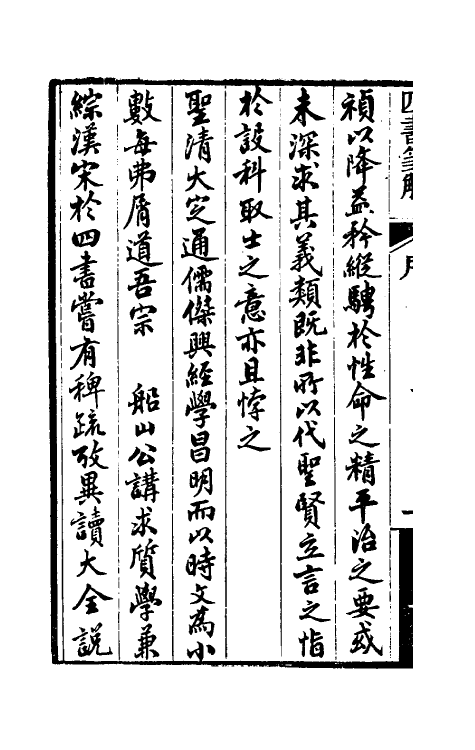 四書箋解 序
禎以降益矜縱騁於性命之精平治之要或
未深求其義類既非所以代聖賢立言之恉
於設科取士之意亦且悖之
聖清大定通儒傑興經學昌明而以時文為小
數每弗屑道吾宗 船山公講求質學兼
綜漢宋於四書嘗有稗疏攷異讀大全說